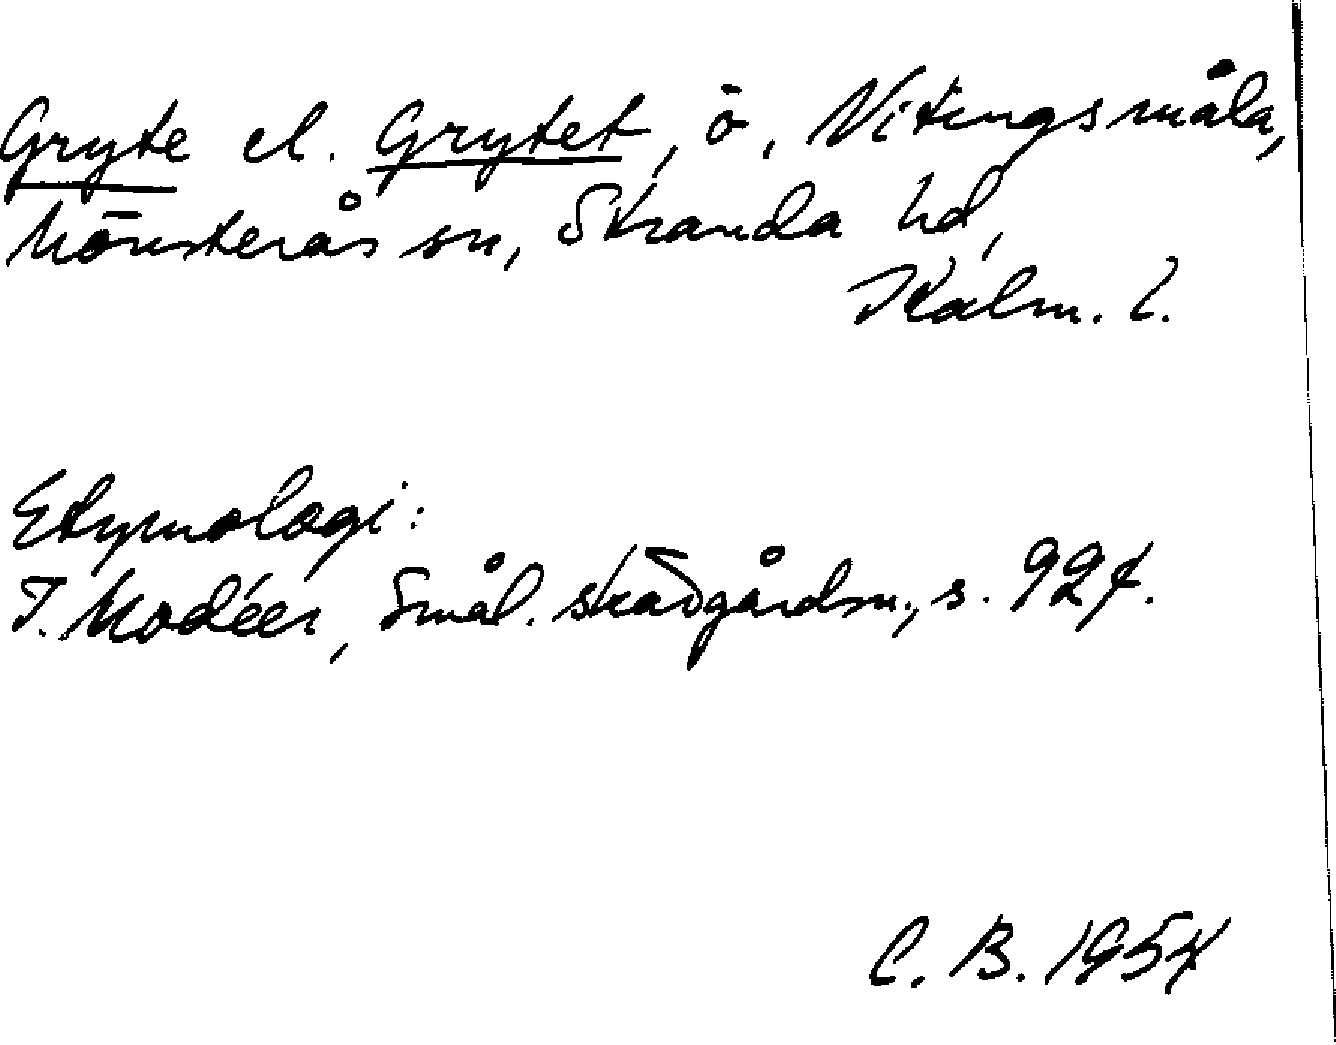 Gryte el. Grytet, ö, Vitingsmåla,
Mönsterås sn, Stranda hd,
Kalm. l.
Etymologi:
I. Modéer, Smål. skärgårdsn., s. 92f.
C. B. 1954